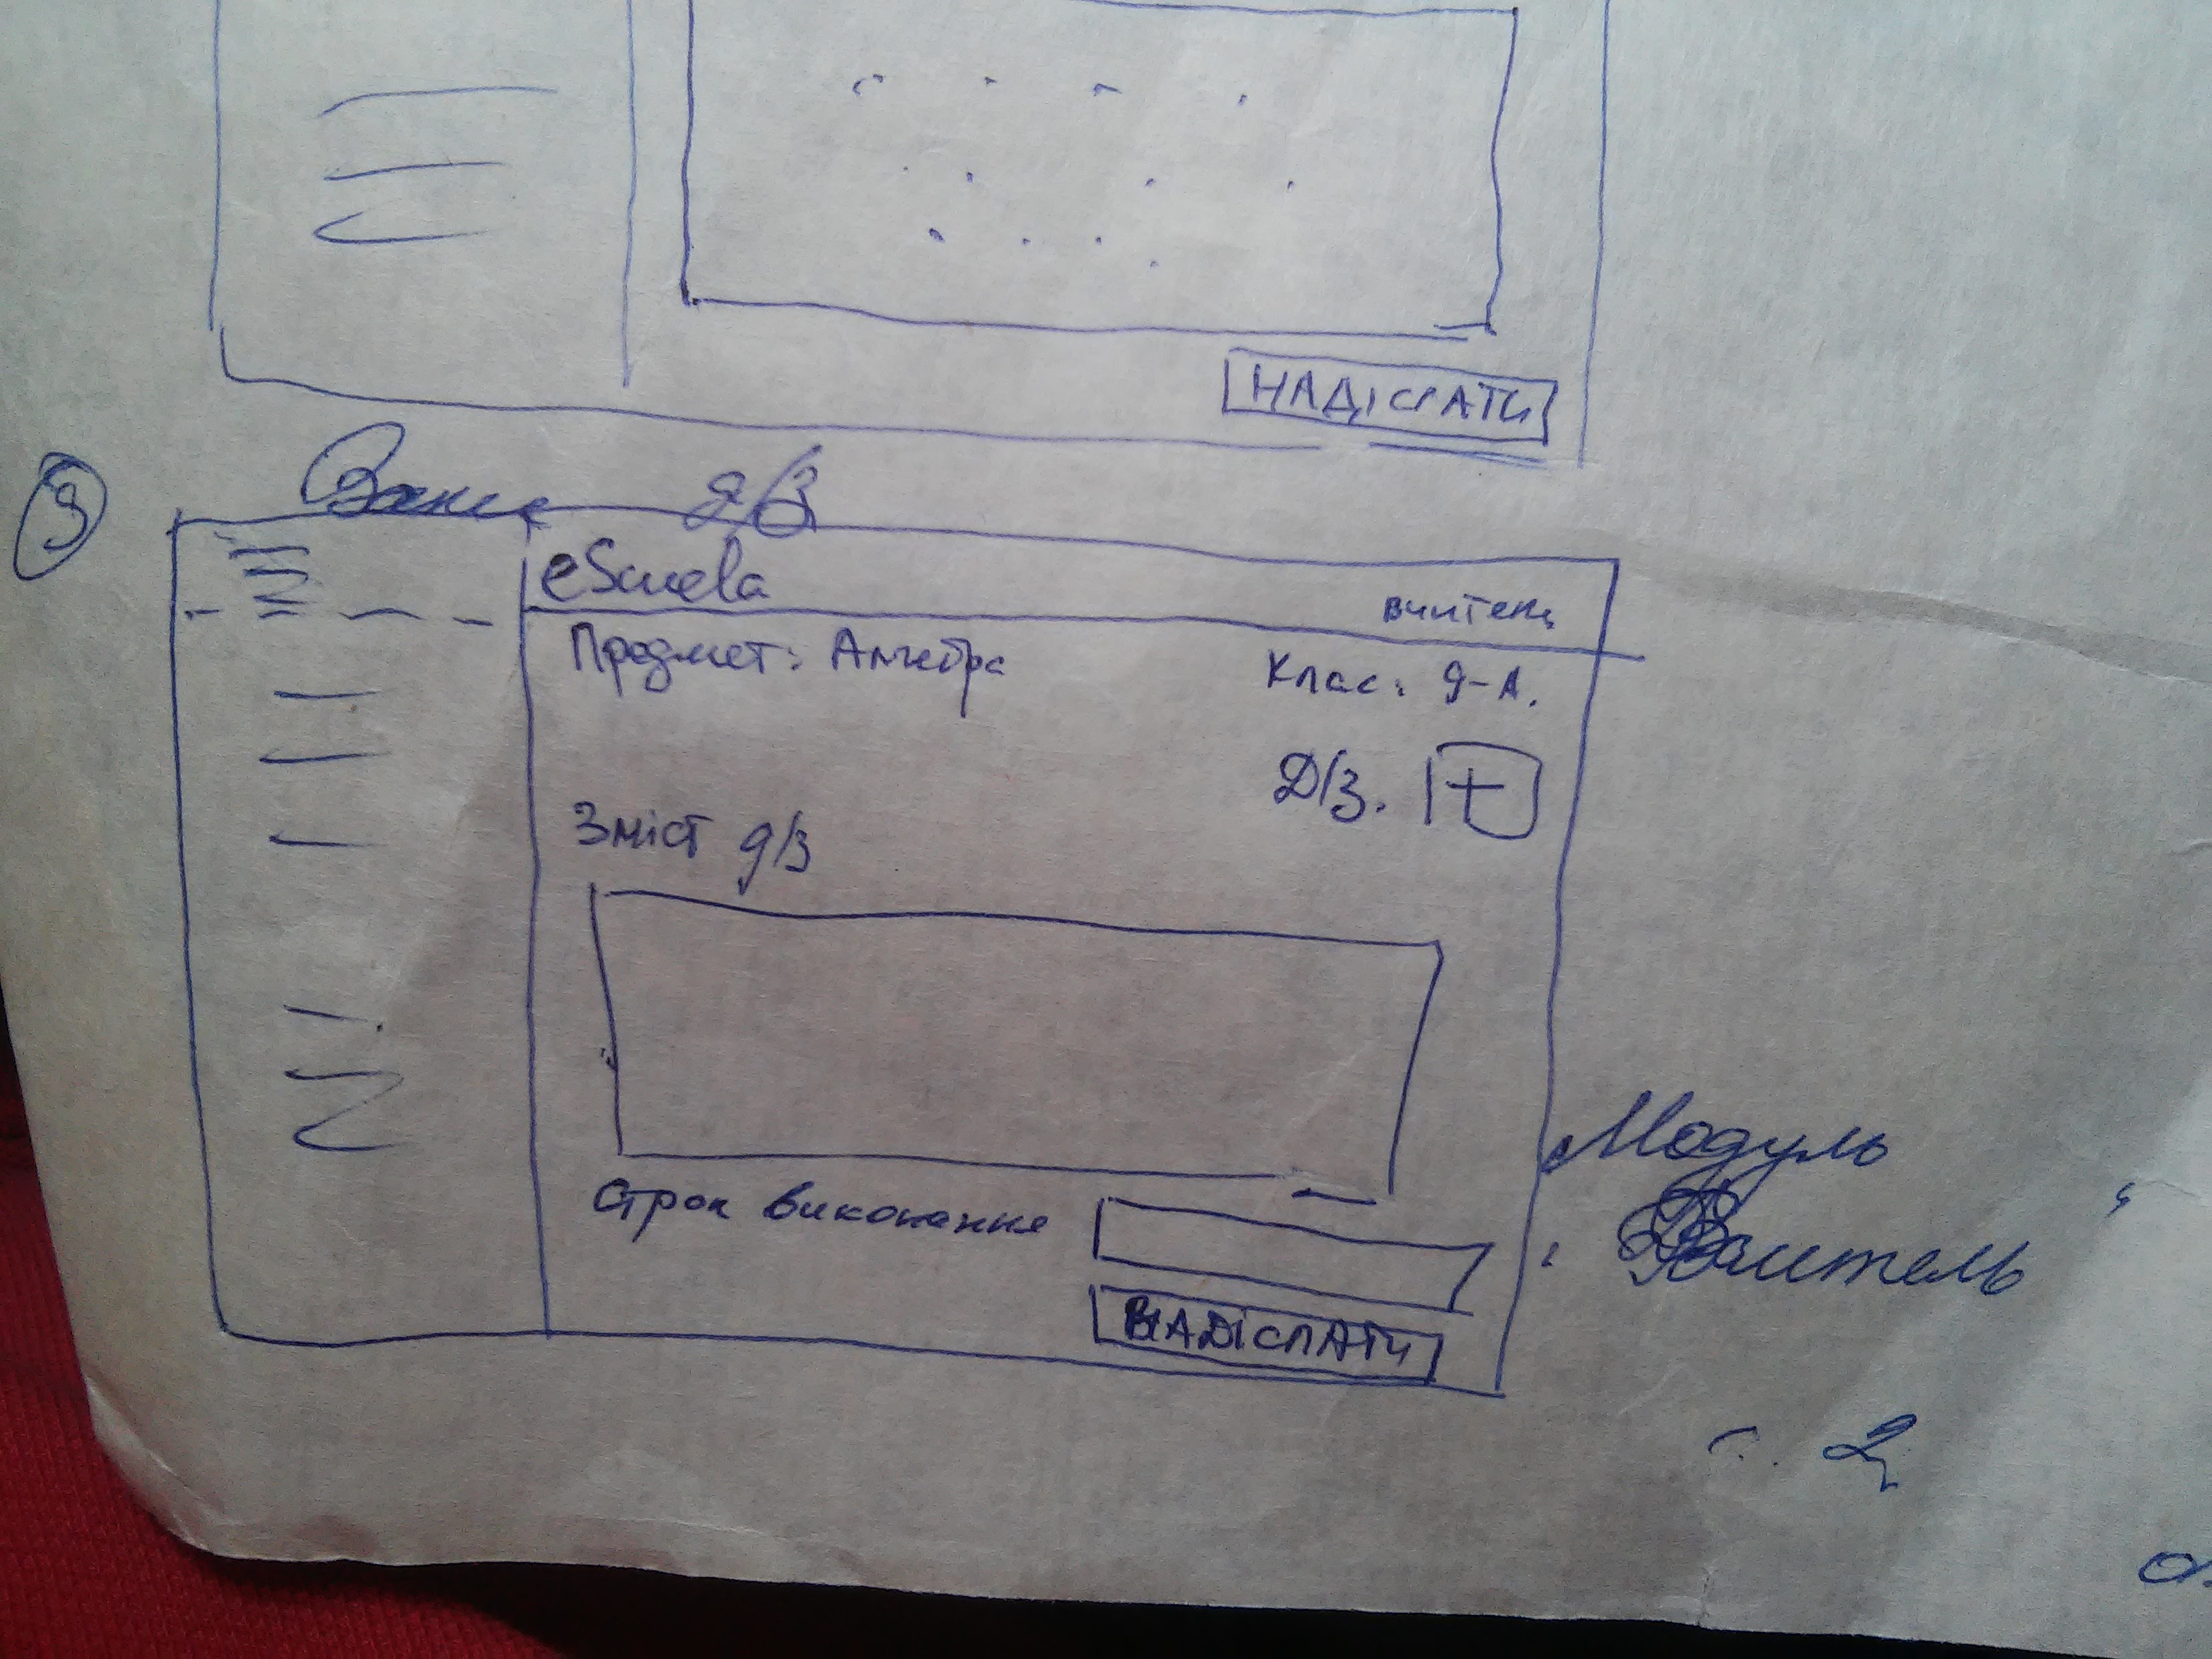 НАДІСЛАТИ
3
Вікно д/з
eScuela вчитель
Предмет: Алгебра Клас: 9-А.
Д/З. +
Зміст д/з
Строк виконання
НАДІСЛАТИ
Модуль
Вчитель